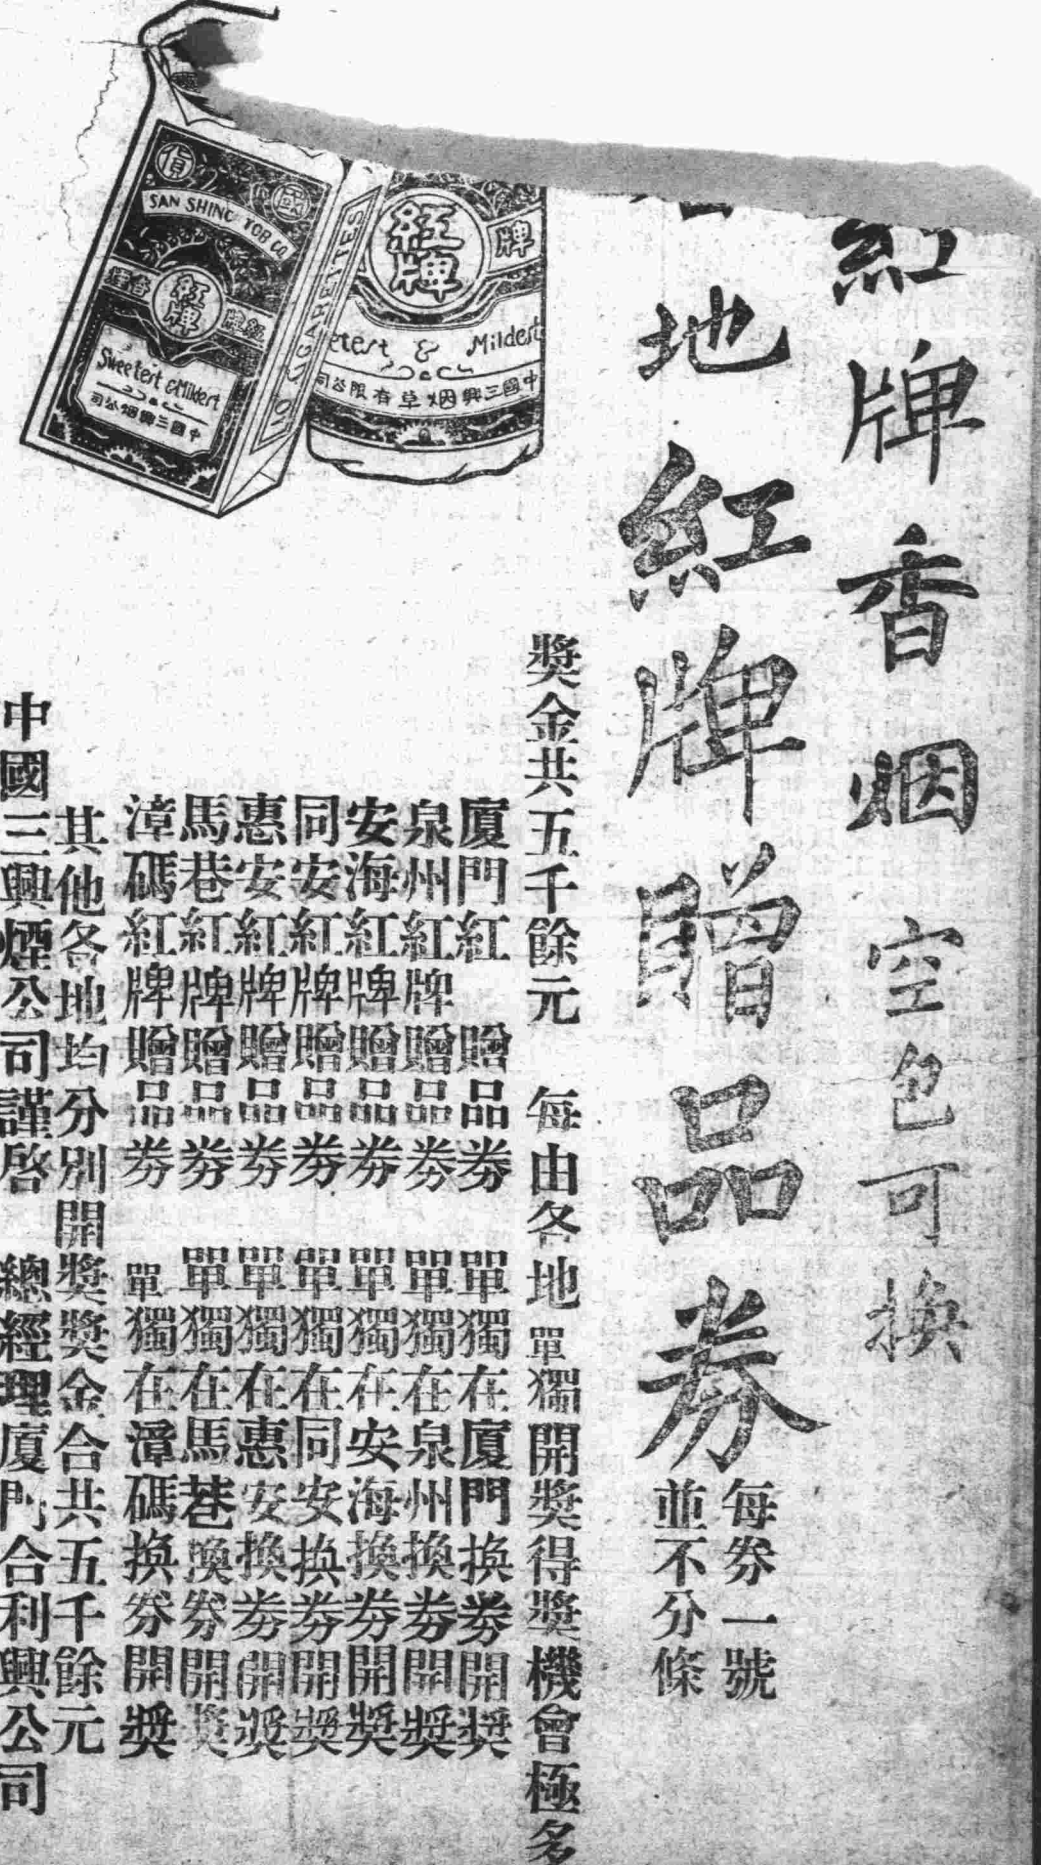 紅牌香烟空包可換
地紅牌贈品券
每券一號
並不分條
獎金共五千餘元 每由各地單獨開獎得獎機會極多
廈門紅 贈品券 單獨在廈門換券開獎
泉州紅牌贈品券 單獨在泉州換券開獎
安海紅牌贈品券 單獨在安海換券開獎
同安紅牌贈品券 單獨在同安換券開獎
惠安紅牌贈品券 單獨在惠安換券開獎
馬巷紅牌贈品券 單獨在馬巷換券開獎
漳碼紅牌贈品券 單獨在漳碼換券開獎
其他各地均分別開獎獎金合共五千餘元
中國三興煙公司謹啓 總經理廈門合利興公司
國貨
SAN SHING TOB CO
紅牌香煙
紅牌
Sweetest & Mildest
中國三興烟公司
10 CIGARETTES
紅牌
牌
etest & Mildest
中國三興烟草有限公司